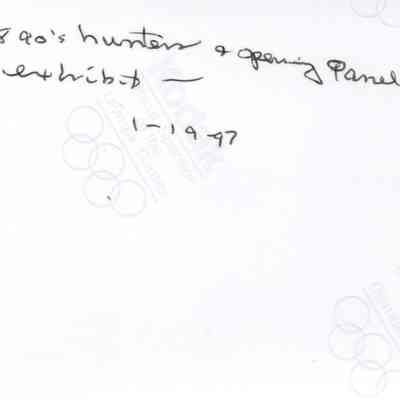 890's hunters & opening Panel
exhibit —
1-19-97